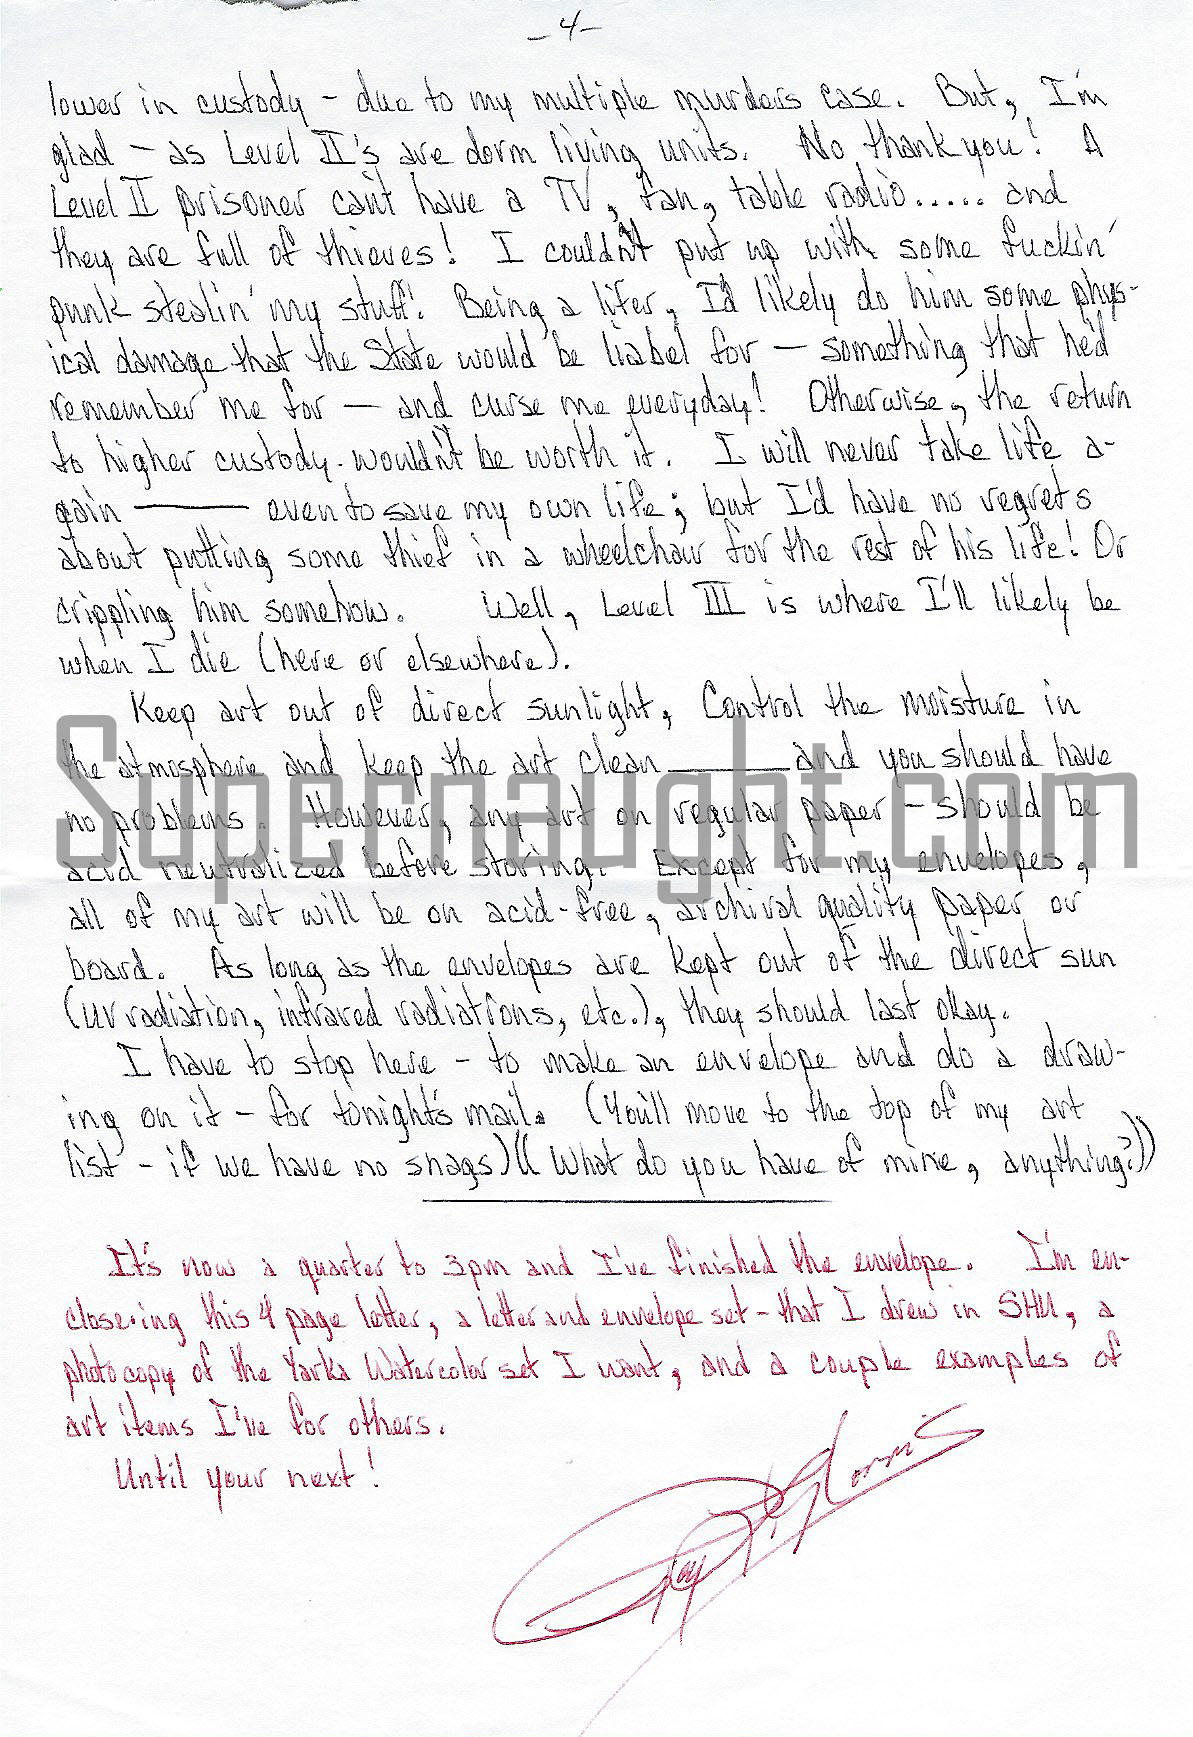 -4-
lower in custody - due to my multiple murders case. But, I'm
glad - as Level II's are dorm living units. No thank you! A
Level II prisoner can't have a TV, fan, table radio..... and
they are full of thieves! I couldn't put up with some fuckin'
punk stealin' my stuff! Being a lifer, I'd likely do him some phys-
ical damage that the State would be liabel for - something that he'd
remember me for - and curse me everyday! Otherwise, the return
to higher custody wouldn't be worth it. I will never take life a-
gain ——— even to save my own life; but I'd have no regrets
about putting some thief in a wheelchair for the rest of his life! Or
crippling him somehow. Well, Level III is where I'll likely be
when I die (here or elsewhere).
Keep art out of direct sunlight, Control the moisture in
the atmosphere and keep the art clean ——— and you should have
no problems. However, any art on regular paper - should be
acid neutralized before storing. Except for my envelopes,
all of my art will be on acid-free, archival quality paper or
board. As long as the envelopes are kept out of the direct sun
(UV radiation, infrared radiations, etc.), they should last okay.
I have to stop here - to make an envelope and do a draw-
ing on it - for tonight's mail. (You'll move to the top of my art
list - if we have no snags)(( What do you have of mine, anything?))
It's now a quarter to 3pm and I've finished the envelope. I'm en-
close·ing this 4 page letter, a letter and envelope set - that I drew in SHU, a
photocopy of the Yarka Watercolor set I want, and a couple examples of
art items I've for others.
Until your next!
Roy Norris
Supernaught.com